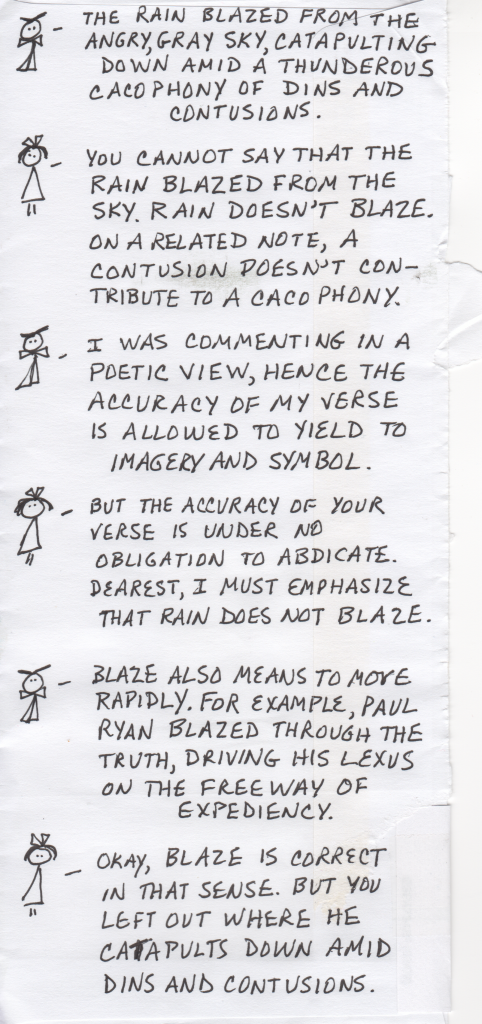 THE RAIN BLAZED FROM THE
ANGRY, GRAY SKY, CATAPULTING
DOWN AMID A THUNDEROUS
CACOPHONY OF DINS AND
CONTUSIONS.
YOU CANNOT SAY THAT THE
RAIN BLAZED FROM THE
SKY. RAIN DOESN'T BLAZE.
ON A RELATED NOTE, A
CONTUSION DOESN'T CON-
TRIBUTE TO A CACOPHONY.
I WAS COMMENTING IN A
POETIC VIEW, HENCE THE
ACCURACY OF MY VERSE
IS ALLOWED TO YIELD TO
IMAGERY AND SYMBOL.
BUT THE ACCURACY OF YOUR
VERSE IS UNDER NO
OBLIGATION TO ABDICATE.
DEAREST, I MUST EMPHASIZE
THAT RAIN DOES NOT BLAZE.
BLAZE ALSO MEANS TO MOVE
RAPIDLY. FOR EXAMPLE, PAUL
RYAN BLAZED THROUGH THE
TRUTH, DRIVING HIS LEXUS
ON THE FREEWAY OF
EXPEDIENCY.
OKAY, BLAZE IS CORRECT
IN THAT SENSE. BUT YOU
LEFT OUT WHERE HE
CATAPULTS DOWN AMID
DINS AND CONTUSIONS.